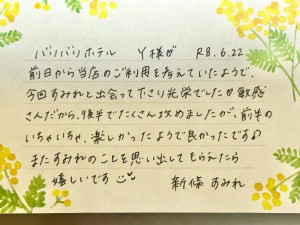 バリバリホテル Y様♡ R8.6.22
前日から当店のご利用を考えていたようで、
今回すみれと出会って下さり光栄でした♡敏感
さんだから、後半でたくさん攻めましたが、前半の
いちゃいちゃ、楽しかったようで良かったです♪
またすみれのことを思い出してもらえたら
嬉しいです 新條 すみれ